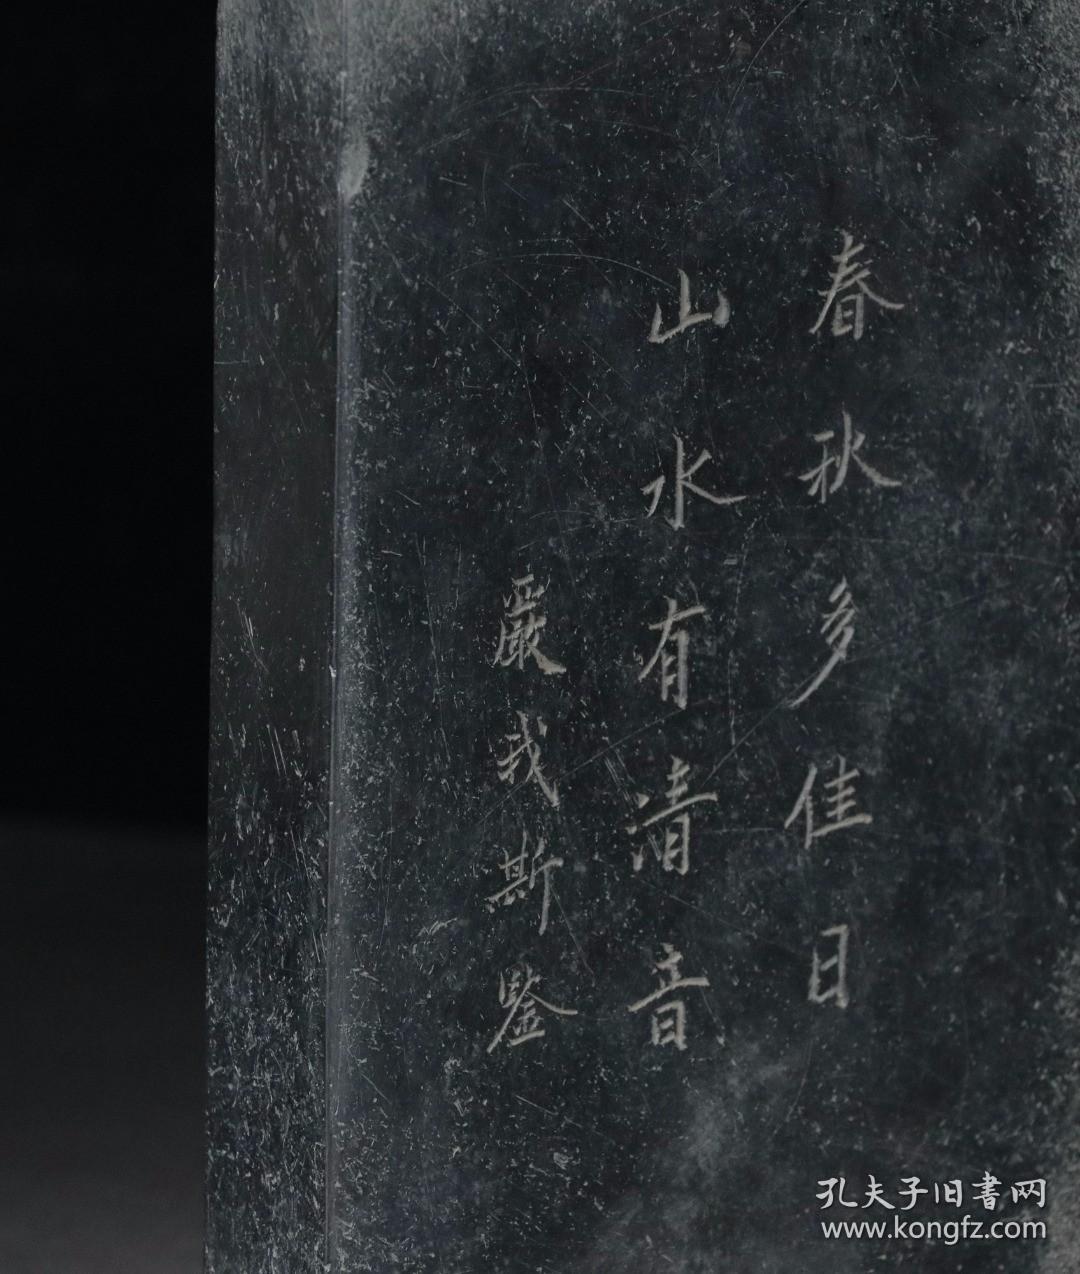 春秋多佳日
山水有清音
嚴我斯鑒
孔夫子旧書网
www.kongfz.com